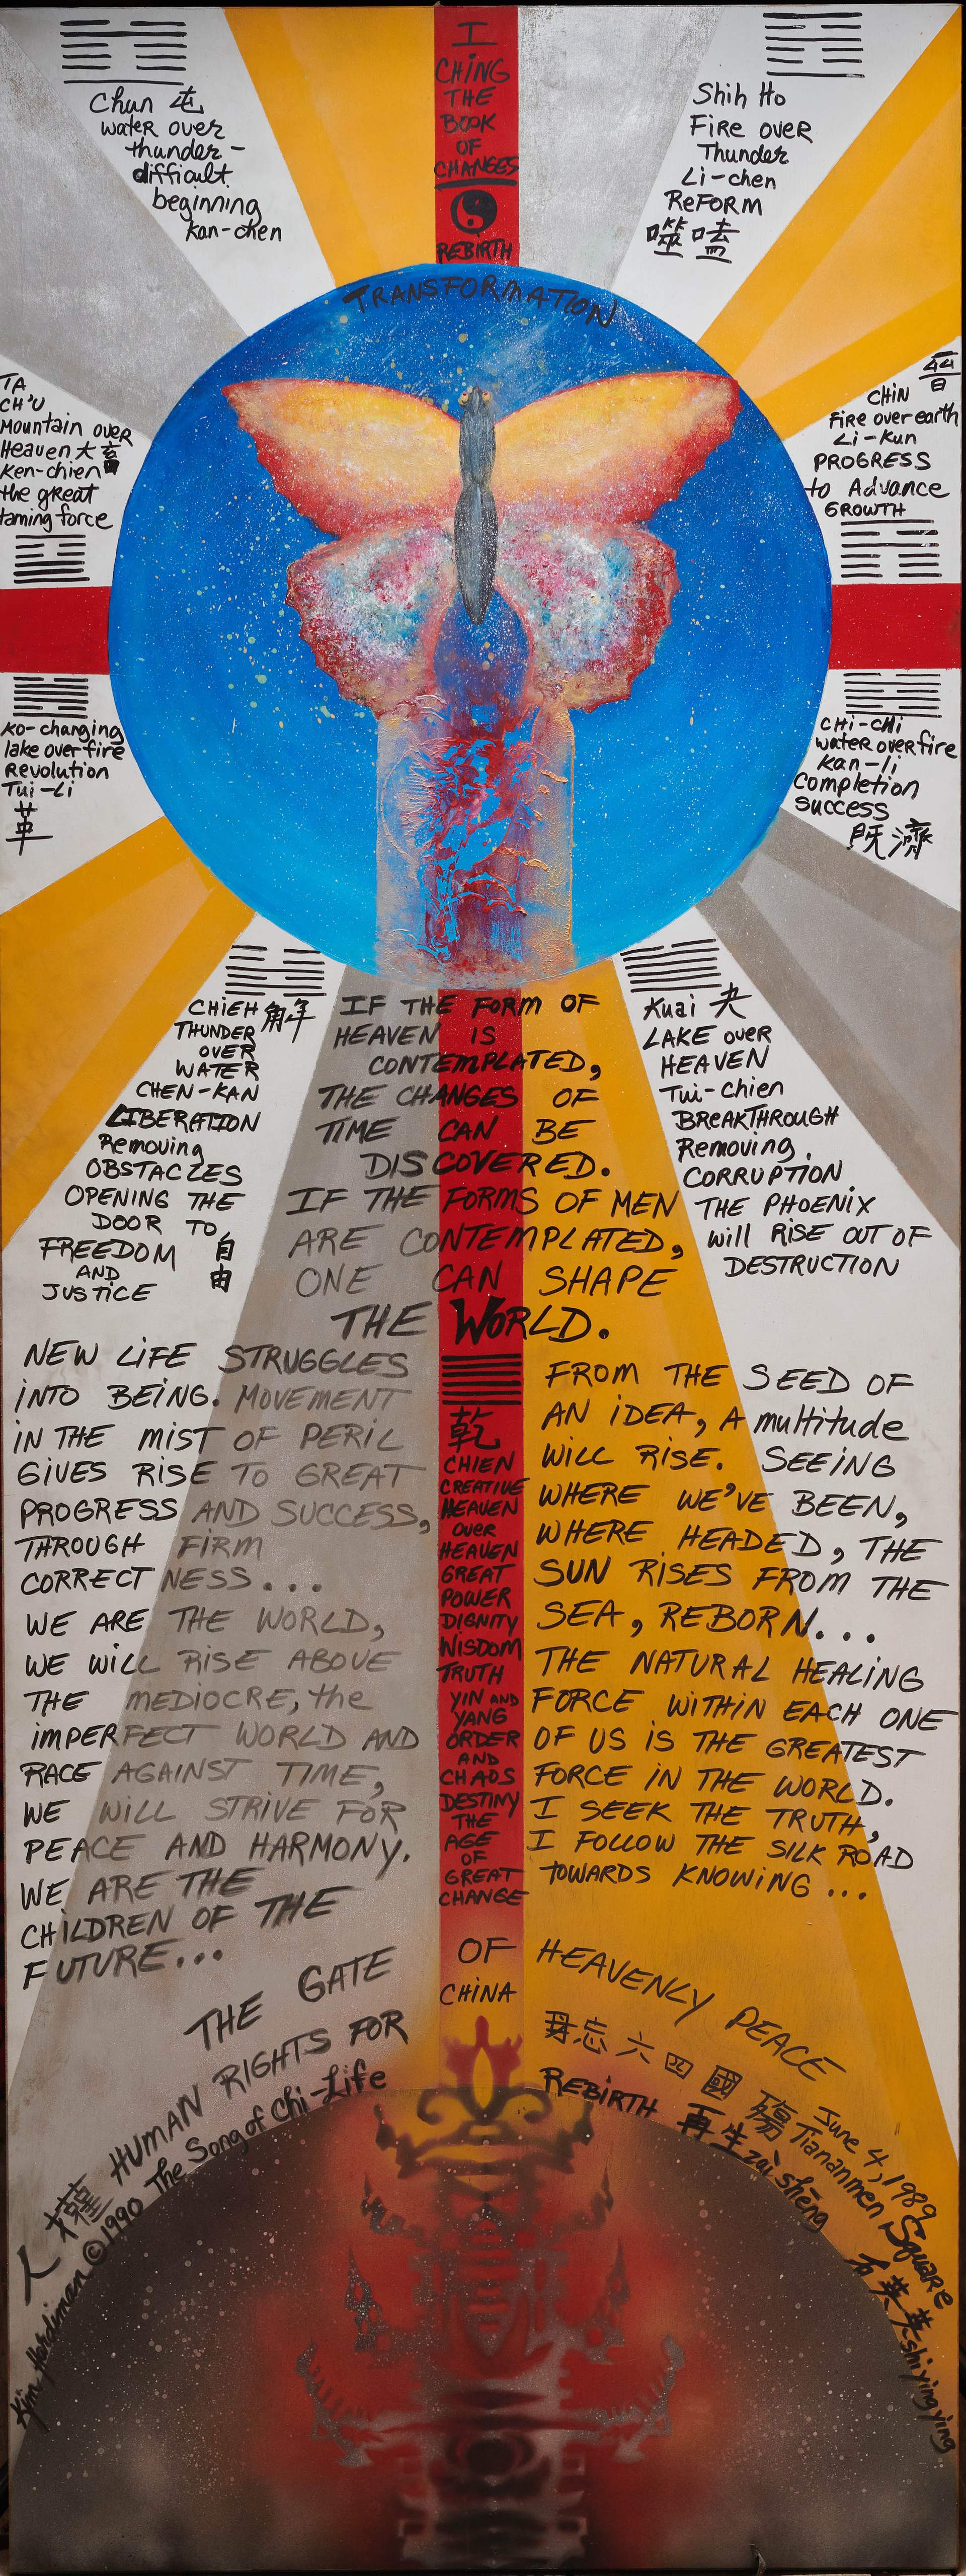 I
CHING
THE
BOOK
OF
CHANGES
REBIRTH
TRANSFORMATION
Chun 屯
water over
thunder -
difficult
beginning
kan-chen
Shih Ho
FIRE OVER
Thunder
Li-chen
REFORM
噬嗑
TA
CH'U
Mountain over
Heaven 大畜
Ken-chien
the great
taming force
晉
CHIN
Fire over earth
Li-Kun
PROGRESS
to Advance
GROWTH
Ko-changing
lake over fire
Revolution
Tui-Li
革
CHi-CHi
water over fire
Kan-li
Completion
Success
既濟
CHIEH 解
THUNDER
OVER
WATER
CHEN-KAN
LIBERATION
Removing
OBSTACLES
OPENING THE
DOOR TO
FREEDOM 自由
AND
JUSTICE
IF THE FORM OF
HEAVEN IS
CONTEMPLATED,
THE CHANGES OF
TIME CAN BE
DISCOVERED.
IF THE FORMS OF MEN
ARE CONTEMPLATED,
ONE CAN SHAPE
THE WORLD.
Kuai 夬
LAKE over
HEAVEN
Tui-Chien
BREAKTHROUGH
Removing
CORRUPTION
THE PHOENIX
will RISE OUT OF
DESTRUCTION
NEW LIFE STRUGGLES
INTO BEING. MOVEMENT
IN THE MIST OF PERIL
GIVES RISE TO GREAT
PROGRESS AND SUCCESS,
THROUGH FIRM
CORRECTNESS...
WE ARE THE WORLD,
WE WILL RISE ABOVE
THE MEDIOCRE, the
IMPERFECT WORLD AND
RACE AGAINST TIME,
WE WILL STRIVE FOR
PEACE AND HARMONY.
WE ARE THE
CHILDREN OF THE
FUTURE...
乾
CHIEN
CREATIVE
HEAVEN
OVER
HEAVEN
GREAT
POWER
DIGNITY
WISDOM
TRUTH
YIN AND
YANG
ORDER
AND
CHAOS
DESTINY
THE
AGE
OF
GREAT
CHANGE
FROM THE SEED OF
AN IDEA, A multitude
WILL RISE. SEEING
WHERE WE'VE BEEN,
WHERE HEADED, THE
SUN RISES FROM THE
SEA, REBORN...
THE NATURAL HEALING
FORCE WITHIN EACH ONE
OF US IS THE GREATEST
FORCE IN THE WORLD.
I SEEK THE TRUTH,
I FOLLOW THE SILK ROAD
TOWARDS KNOWING...
THE GATE OF HEAVENLY PEACE
人權 HUMAN RIGHTS FOR CHINA
毋忘六四國殤 June 4, 1989
Tiananmen Square
Kim Hardiman © 1990 The Song of Chi-Life
REBIRTH 再生 zài shēng
石英英 shi ying ying